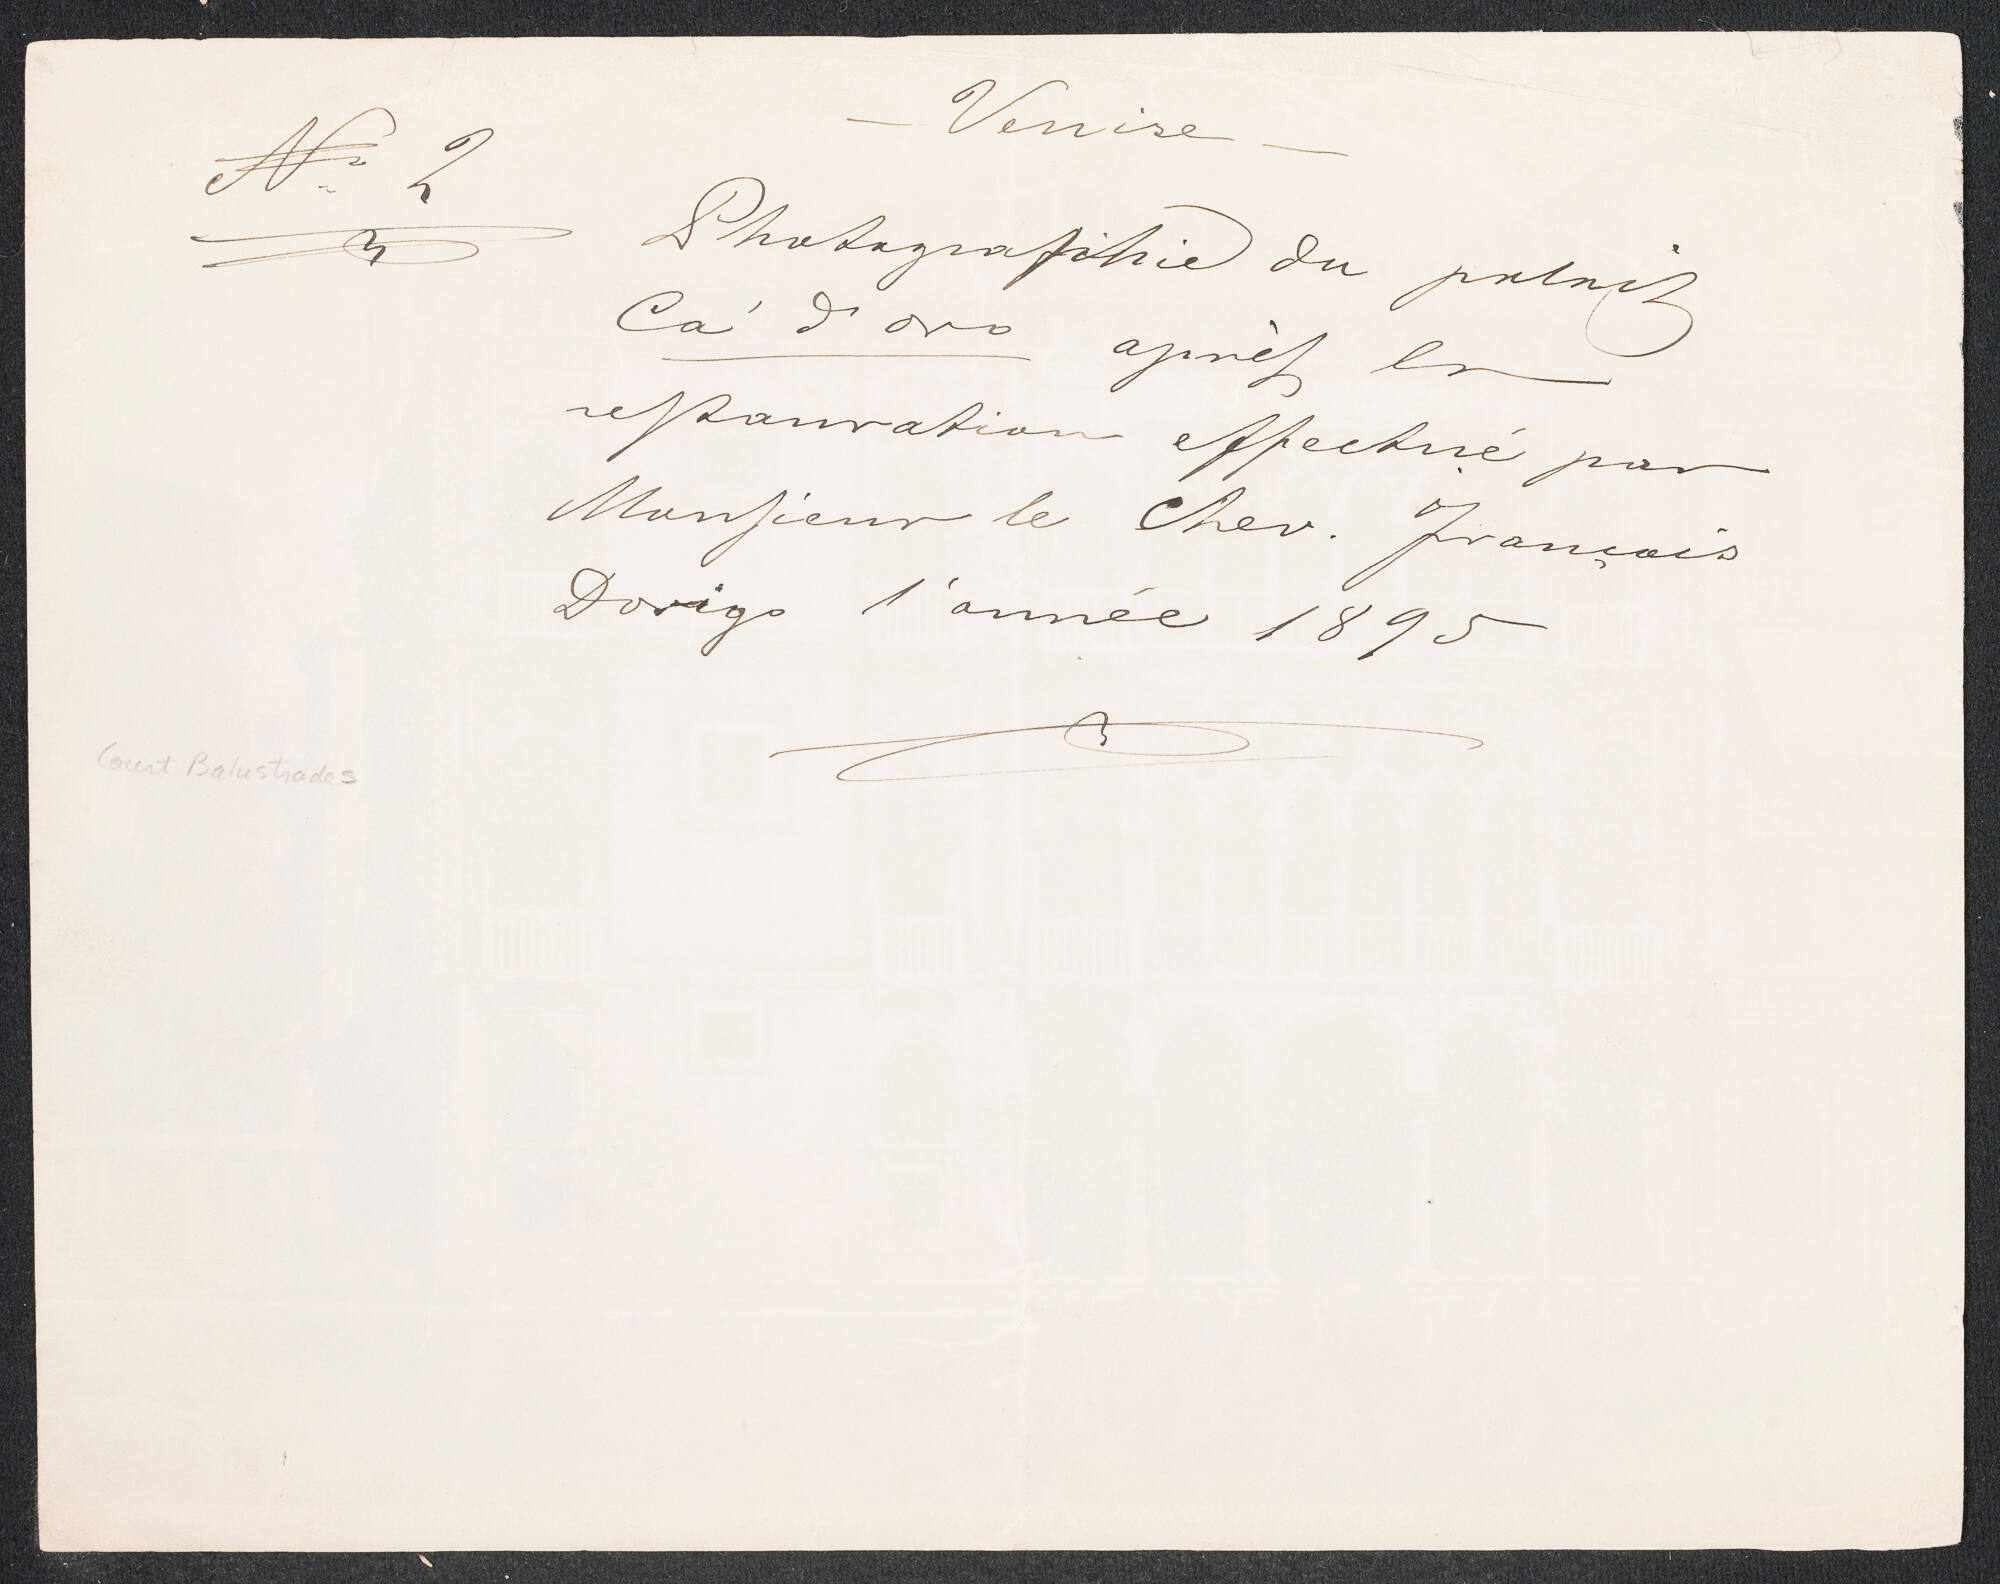 — Venise —
No 2
Photographie du palais
Ca' d'oro après la
restauration effectué par
Monsieur le Chev. François
Dorigo l'année 1895
Court Balustrades